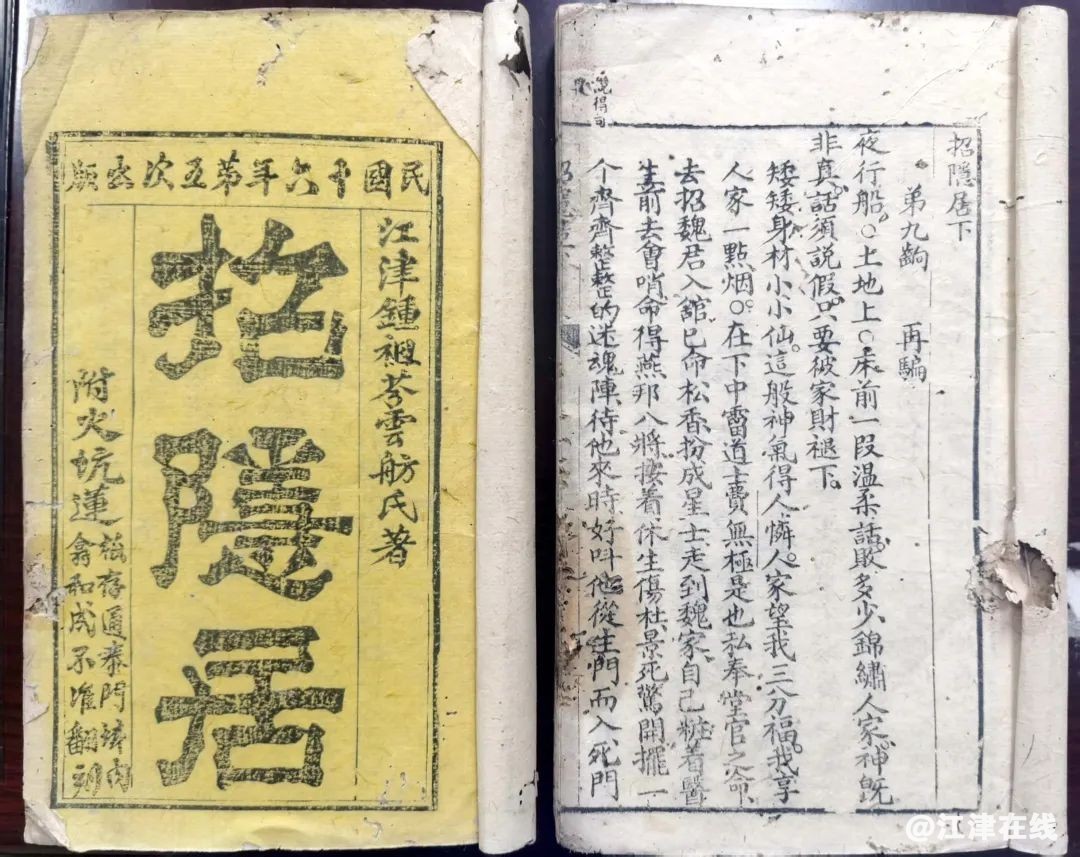 民國十六年第五次出版
江津鍾祖芬雲舫氏著
招隱居
附火坑蓮
板存通泰門城內
翕和成不准翻刻
說得可
招隱居下
弟九齣 再騙
夜行船。○土地上○床前一段溫柔話。敗多少錦繡人家。神旣
非真。話須說假。只要被家財褪下。
矮矮身材小小仙。這般神氣得人憐。人家望我三分福。我享
人家一點烟。○在下中霤道士費無極是也。私奉堂官之命
去招魏君入舘。已命松香扮成星士走到魏家。自己粧着醫
生前去會哨。命得燕邦八將按着休生傷杜景死驚開擺一
个齊齊整整的迷魂陣。待他來時好叫他從生門而入。死門
@江津在线